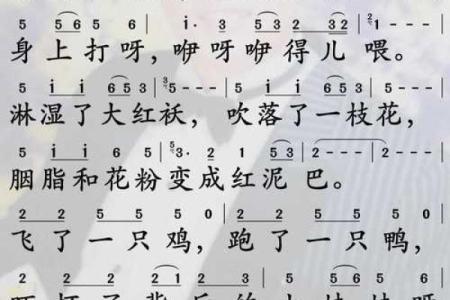 5 5 i i 6 5 | i· 3 5 53 | 2 3 32 | 2 - - - |
身上打呀，咿呀咿得儿喂。
5 i 6 53 | 5 - - - | 5 i 6 53 | 2 - - - |
淋湿了大红袄，吹落了一枝花，
5 i i 6 5 | 5 3· 2 1 5 3 | 2 - - - | 2 - - - |
胭脂和花粉变成红泥巴。
2 2 5 5 5 0 | 2 2 5 5 5 0 |
飞了一只鸡，跑了一只鸭，